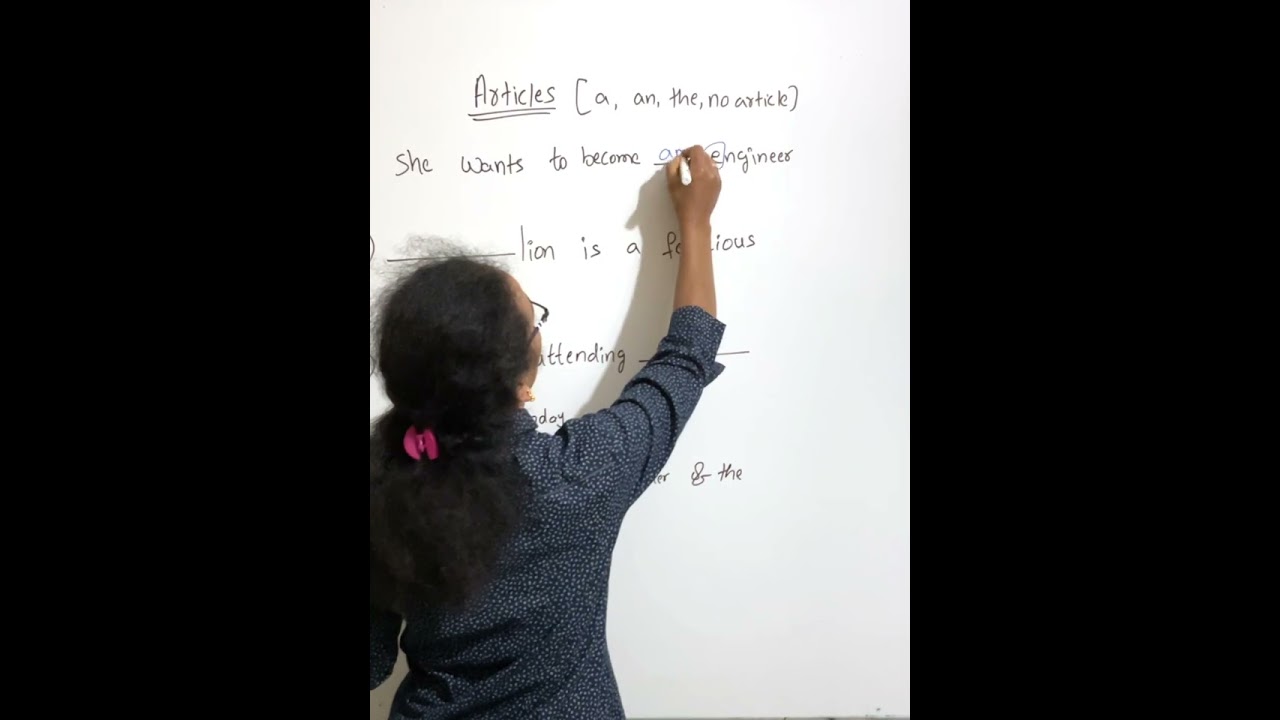 Articles [a, an, the, no article]
She wants to become an engineer
) ______ lion is a
attending ______
& the